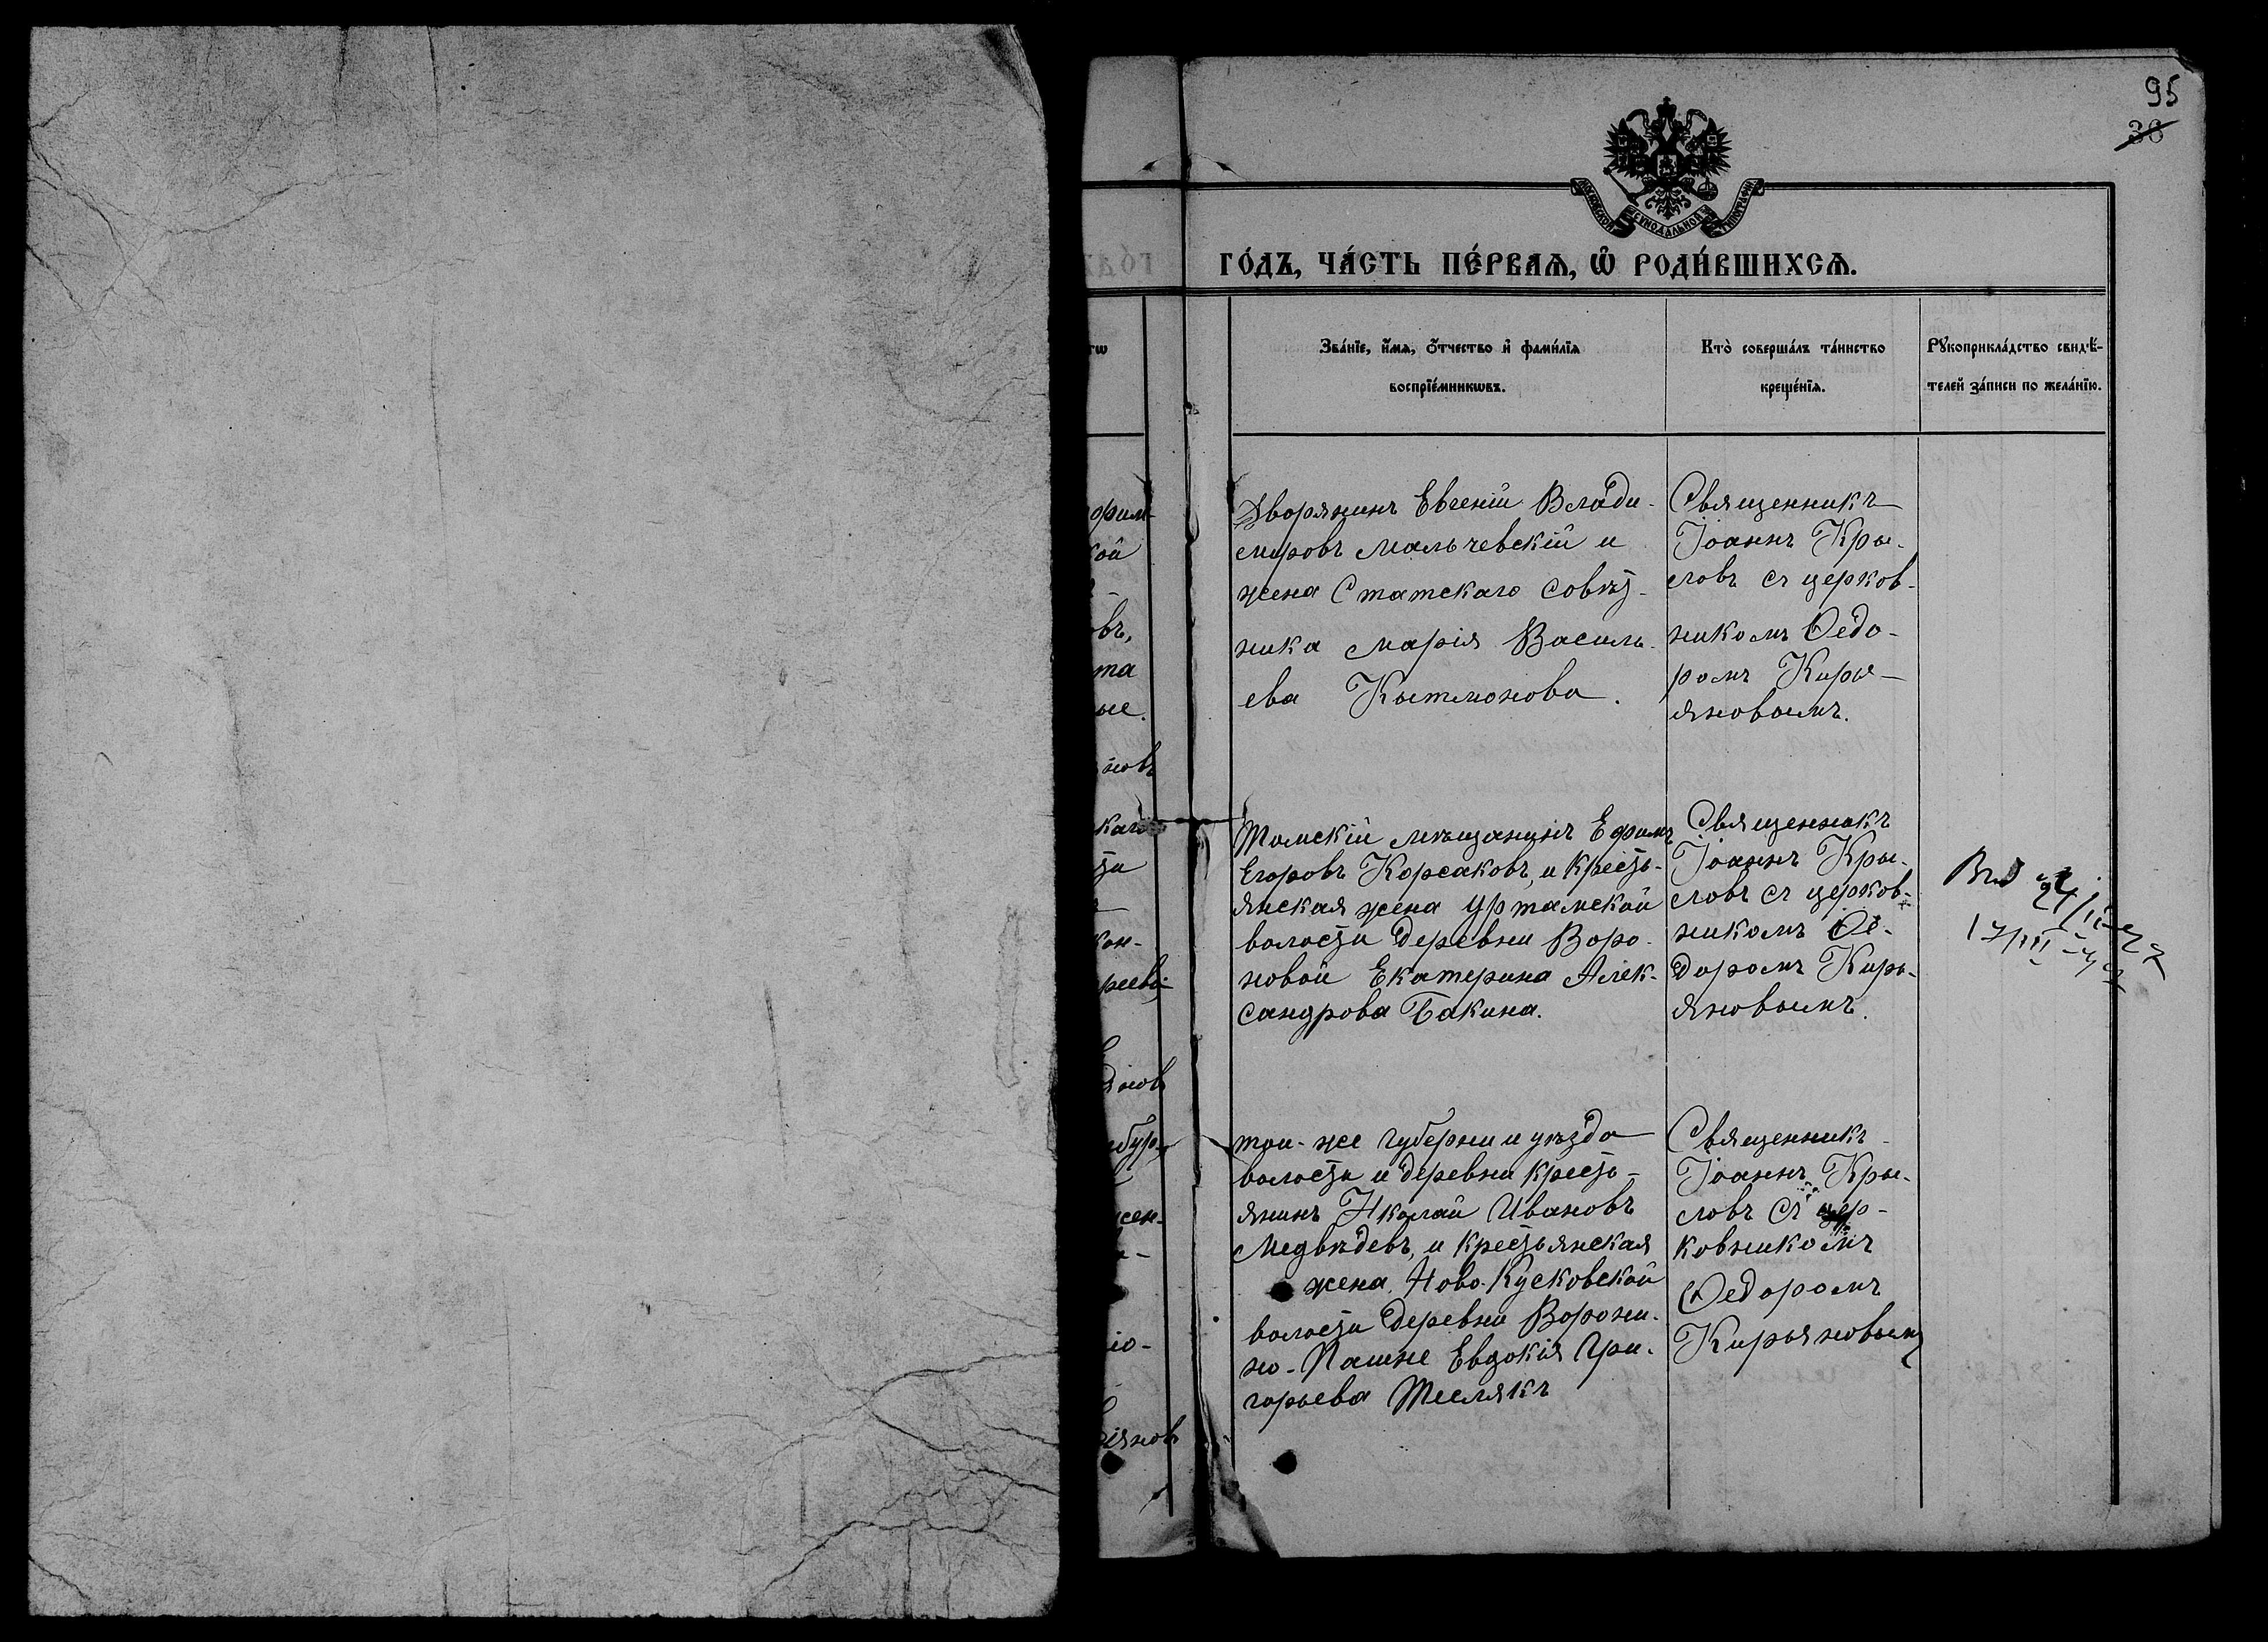 95
36
МОСКОВСКОЙ СѴНОДАЛЬНОЙ ТИПОГРАФІИ
ГО́ДЪ, ЧА́СТЬ ПЕ́РВАѦ, Ѽ РОДИ́ВШИХСѦ.
Зва́нїе, и҆́мѧ, ѻ҆́тчество и҆ фами́лїѧ
воспрїе́мникѡвъ.
Кто̀ соверша́лъ та́инство
креще́нїѧ.
Рꙋкоприкла́дство свидѣ́-
телей за́писи по жела́нїю.
Дворянинъ Евгеній Влади-
міровъ Мальчевскій и
жена Статскаго Совѣт-
ника Марія Василь-
ева Кытмонова.
Священникъ
Іоаннъ Кры-
ловъ съ церков-
никомъ Ѳедо-
ромъ Кирь-
яновымъ.
Томскій мѣщанинъ Ефимъ
Егоровъ Корсаковъ, и кресть-
янская жена Уртамской
волости деревни Воро-
новой Екатерина Алек-
сандрова Бакина.
Священникъ
Іоаннъ Кры-
ловъ съ церков-
никомъ Ѳе-
доромъ Кирь-
яновымъ.
той-же губерніи уѣзда
волости и деревни кресть-
янинъ Николай Ивановъ
Медвѣдевъ, и крестьянская
жена Ново-Кусковской
волости деревни Ворони-
но-Пашне Евдокія Гри-
горьева Тесляkъ
Священникъ
Іоаннъ Кры-
ловъ съ цер-
ковникомъ
Ѳедоромъ
Кирьяновымъ